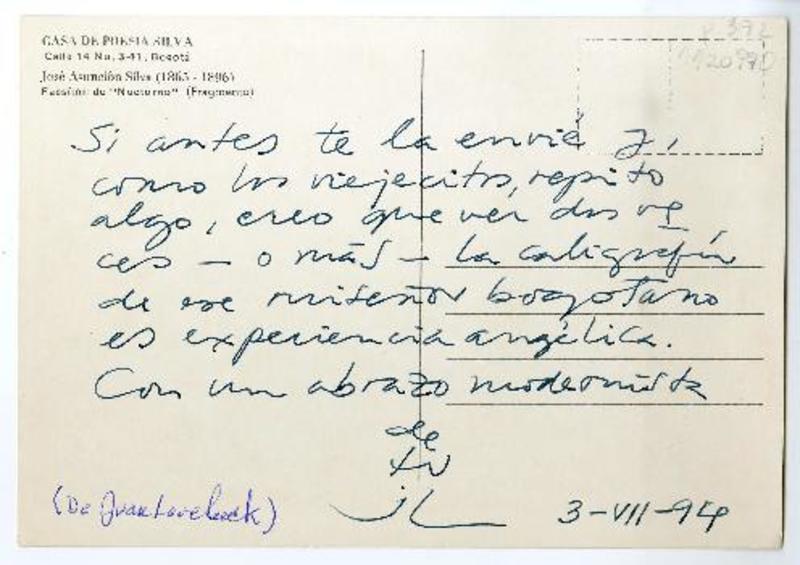 CASA DE POESIA SILVA
Calle 14 No. 3-41, Bogotá
José Asunción Silva (1865 - 1896)
Facsímil de "Nocturno" (Fragmento)
1120970
Si antes te la envié y,
como los viejecitos, repito
algo, creo que ver dos ve
ces — o más — la caligrafía
de ese ruiseñor bogotano
es experiencia angélica.
Con un abrazo modernista
de
tu
JL
(De Juan Loveluck)
3-VII-94